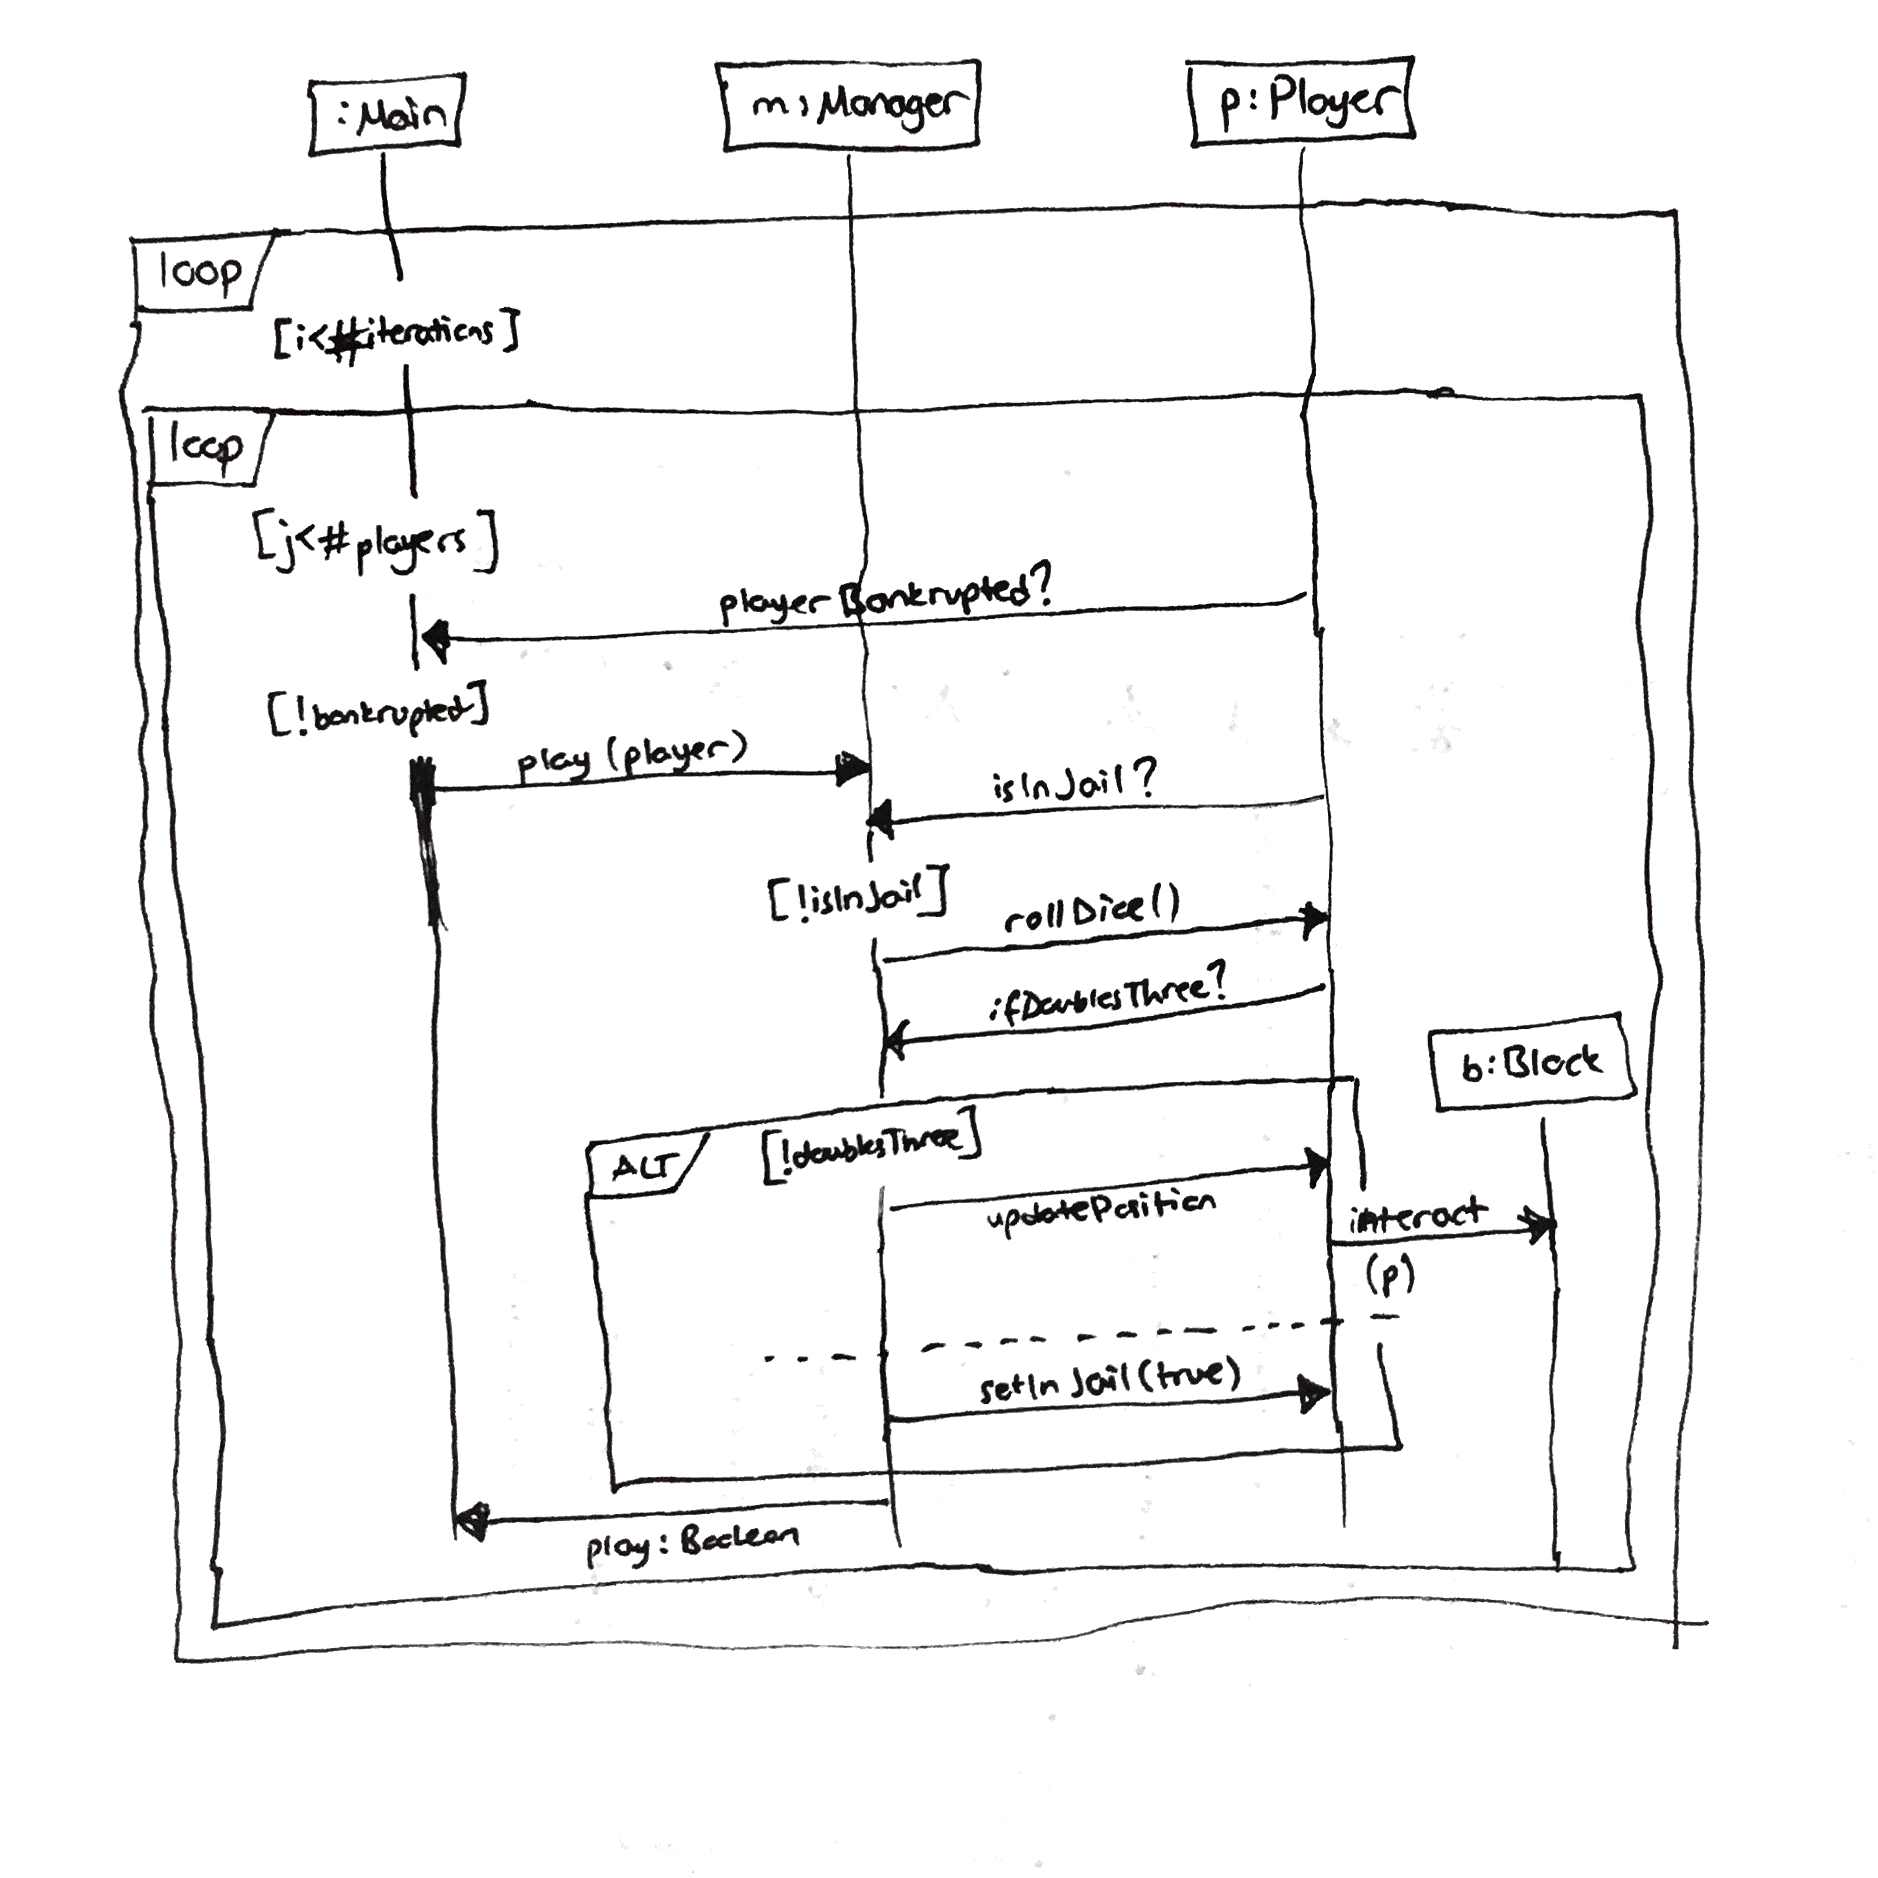 :Main
m:Manager
p:Player
loop
[i<#iterations]
loop
[j<#players]
playerBankrupted?
[!bankrupted]
play (player)
isInJail?
[!isInJail]
rollDice()
ifDoublesThree?
b:Block
ALT
[!doublesThree]
updatePosition
interact
(p)
setInJail(true)
play: Boolean